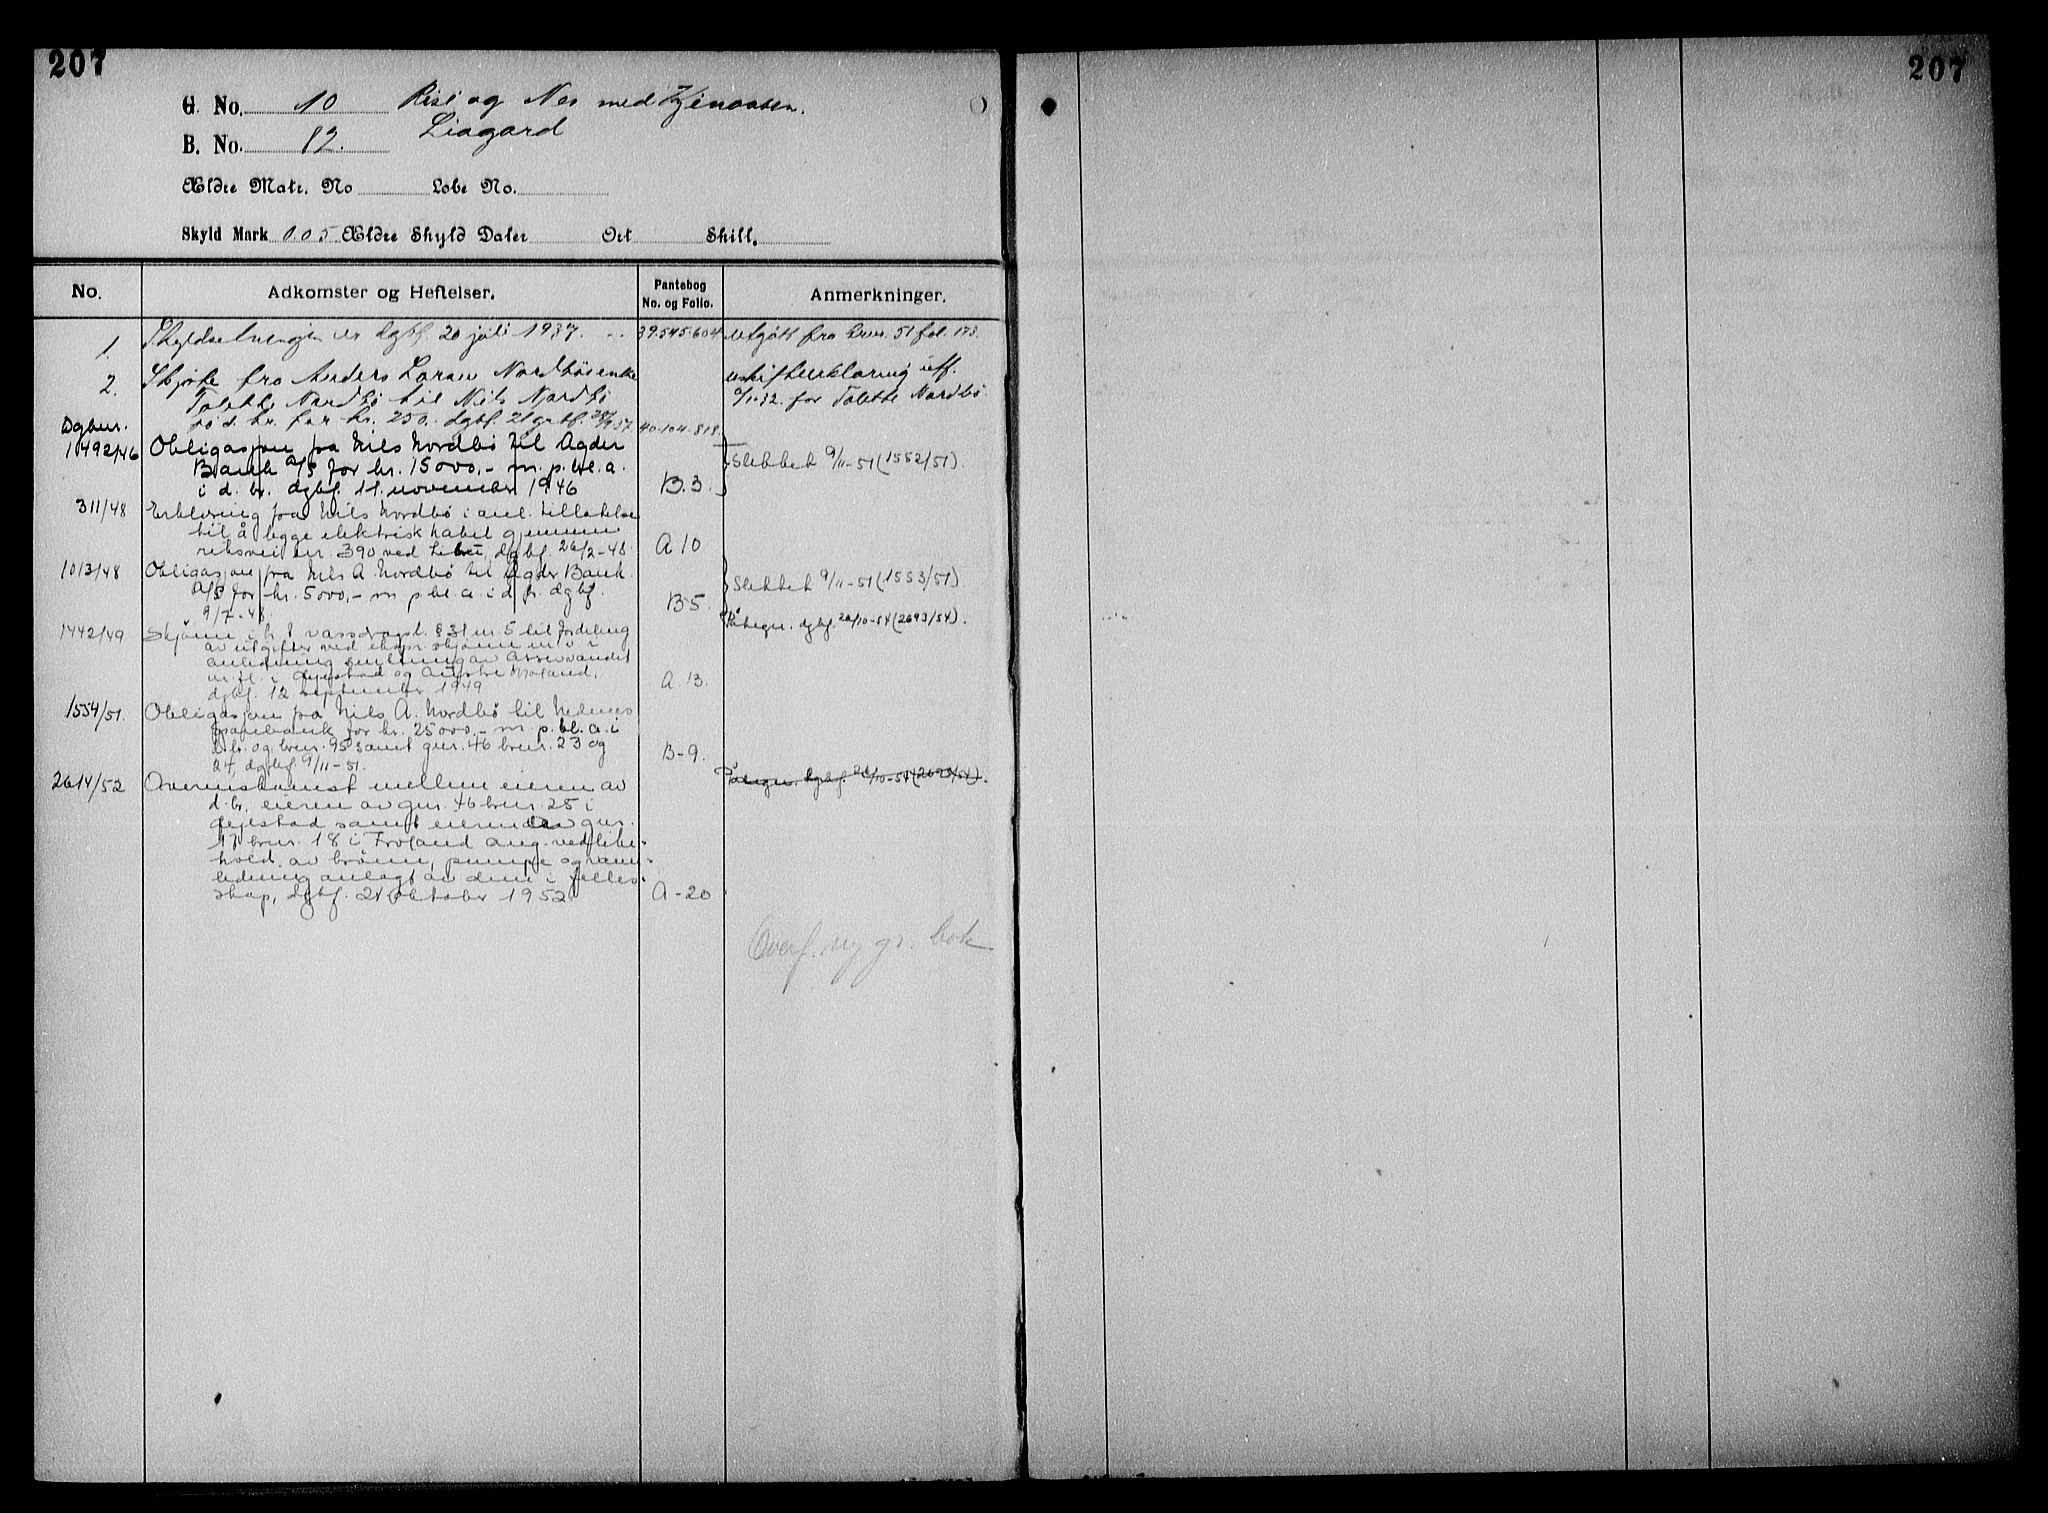 207
207
G. No. 10 Risi og Nes med
B. No. 82. Liagard
Ældre Matr. No Løbe No.
Skyld Mark 0.05 Ældre Skyld Daler Ort Skill.
No. Adkomster og Heftelser. Pantebog No. og Folio. Anmerkninger.
1. Skyldsetningen er dgbf. 20 juli 1937. 39.545-604 utgått fra brnr. 51 fol. 173.
2. Skjøte fra Anders Larsen Nordbøs enke uskifteerklæring iflf.
Tolette Nordbø til Nils Nordbø 9/1-32. for Tolette Nordbø
på d. br. for kr. 250. dgbf. 40-104-818.
Dgbnr.
10492/46 Obligasjon fra Nils Nordbø til Agder
Bank A/S for kr. 15000,- m. p. bl. a. Slettet 9/11-51 (1552/51).
i d. br. dgbf. 11. november 1946 B.3.
311/48 Erklæring fra Nils Nordbø i anl. tillatelse
til å legge elektrisk kabel gjennem
riksvei nr. 390 ved dgbf. 26/2-48. A 10
1013/48 Obligasjon fra Nils A. Nordbø til Agder Bank
A/S for kr. 5000,- m p. bl. a. i d. br. dgbf. Slettet 9/11-51 (1553/51)
9/7-48. B5.
1442/49 Skjønn i h. t. vassdragsl. § 31 nr. 5 til fordeling Påtegn. dgbf. 26/10-54 (2693/54).
av utgifter ved ekspr. skjønn m v i
anledning senkning av
m. fl. i Øyestad og Austre Moland,
dgbf. 12 september 1949 A 13.
1554/51. Obligasjon fra Nils A. Nordbø til Nedenes
Sparebank for kr. 25000,- m. p. bl. a. i
d. br. og brnr. 95 samt gnr. 46 brnr. 23 og
24, dgbf. 9/11-51. B-9.
2614/52 Overenskomst mellem eieren av Påtegn. dgbf. 26/10-54 (2693/54).
d. br., eieren av gnr. 46 brnr. 25 i
Øyestad samt eieren av gnr.
17 brnr. 18 i Froland ang. vedlike-
hold av brønn, pumpe og vann-
ledning anlagt av dem i felles-
skap, dgbf. 21 oktober 1952 A-20
Overf. ny gr. bok